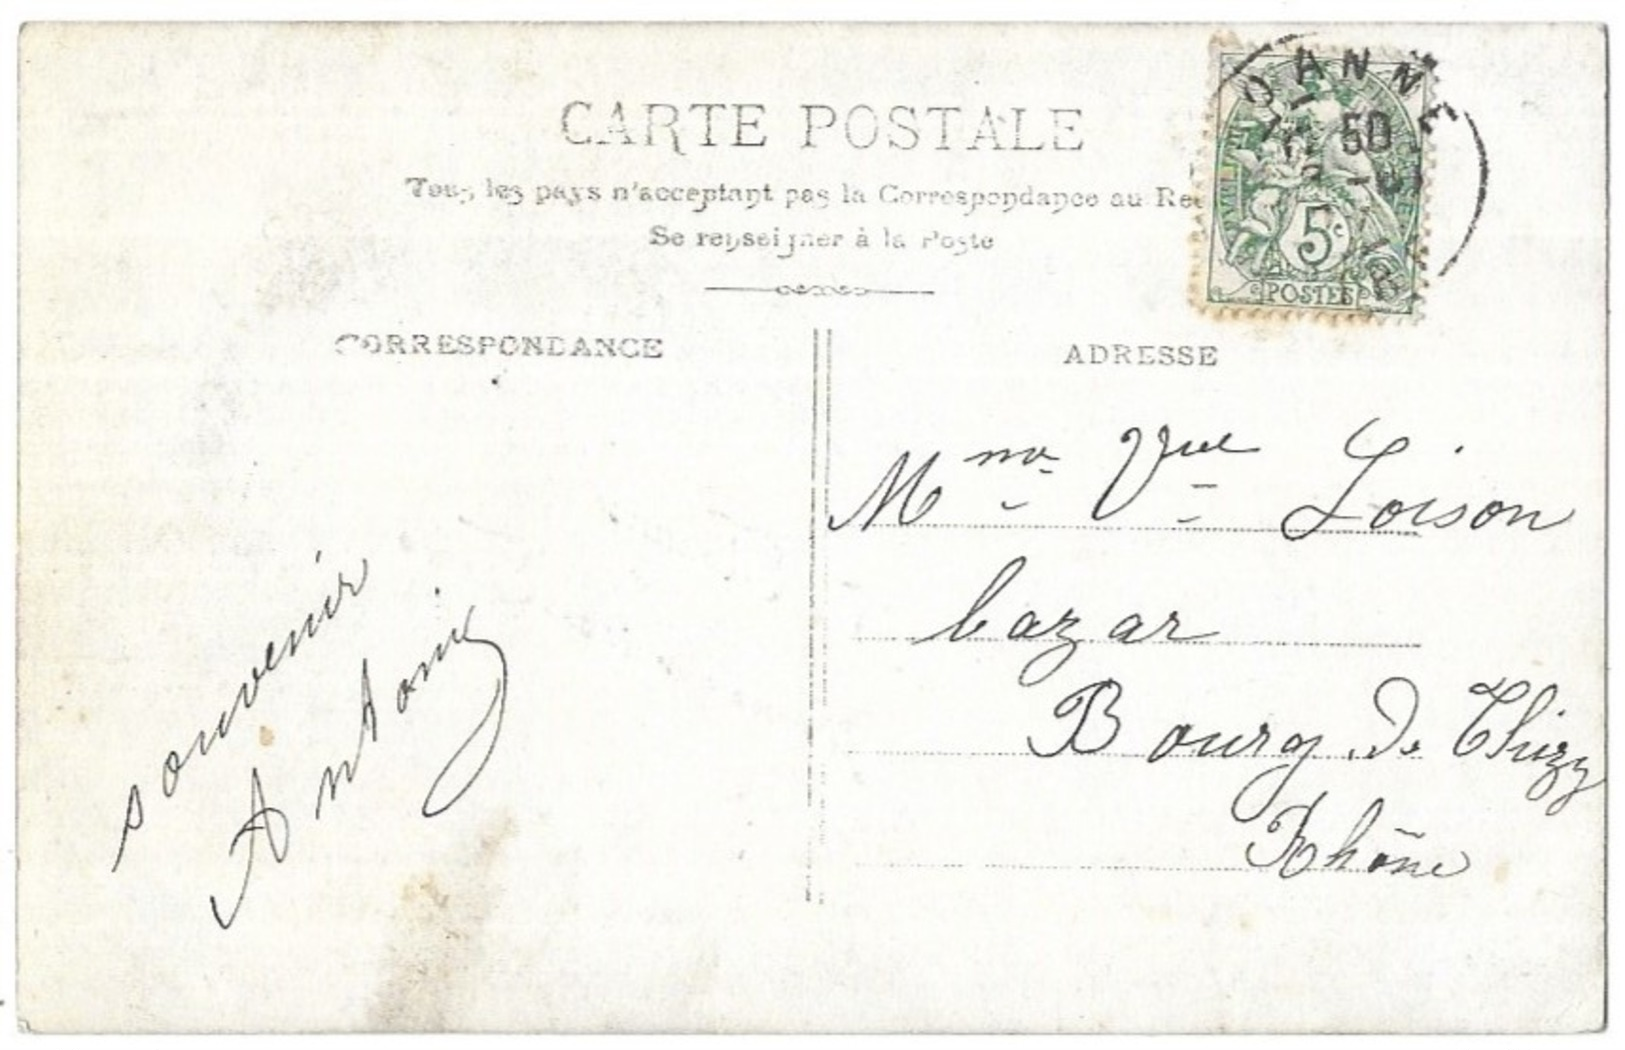 CARTE POSTALE
Tous les pays n'acceptant pas la Correspondance au Re
Se renseigner à la Poste
CORRESPONDANCE
ADRESSE
OANNE
50
5c
POSTES
Mme Vve Loison
bazar
Bourg de Thizy
Rhône
souvenir
Antony